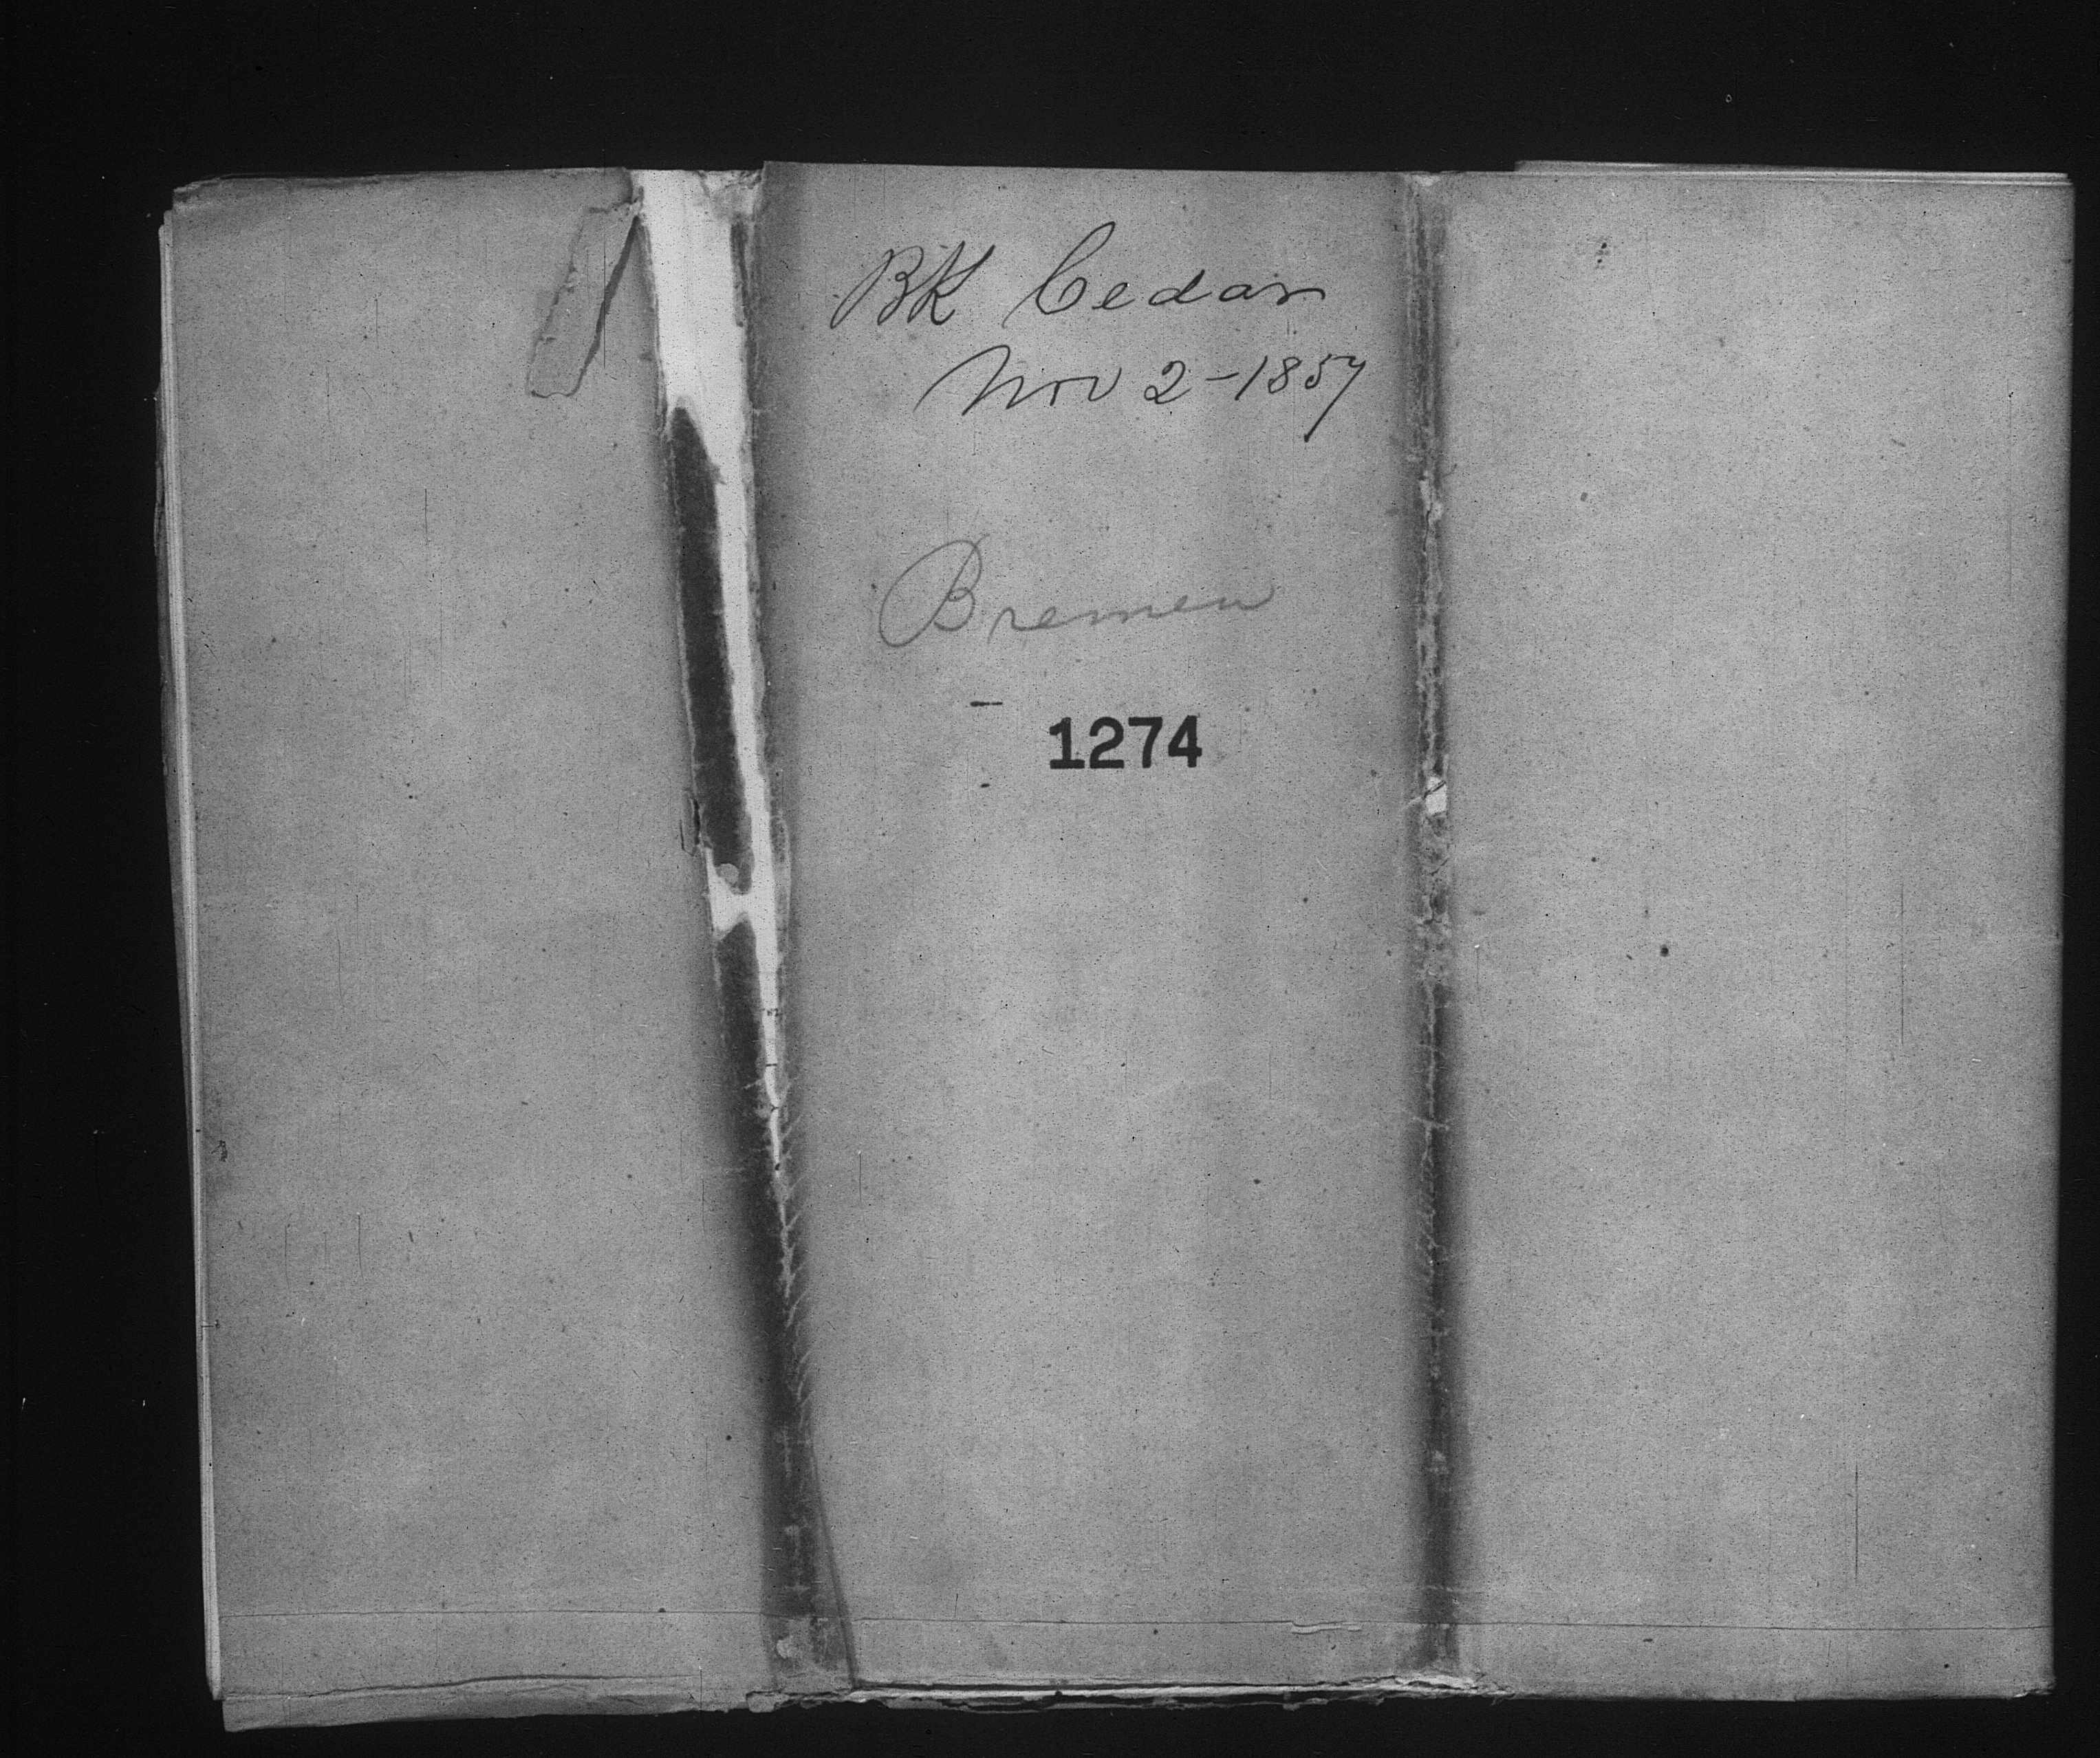 BK Cedar
Nov 2-1857
Bremen
1274